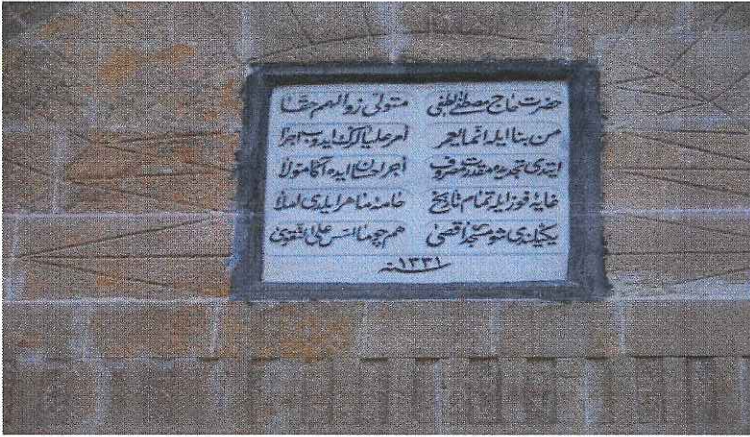 حضرت حاج مصطفى لطفى متولئ حقا
من بنا ايله انما يعمر امر ايدوب اجرا
ايتدى تجديده مقدرت مصروف اجر احسان ايده آكا مولا
غايۀ فوز ايله تمام تاريخ ماهر ايلدى املا
يكيلندى شو مسجد اقصى هم چو من اسس على التقوى
سنه ١٣٣١